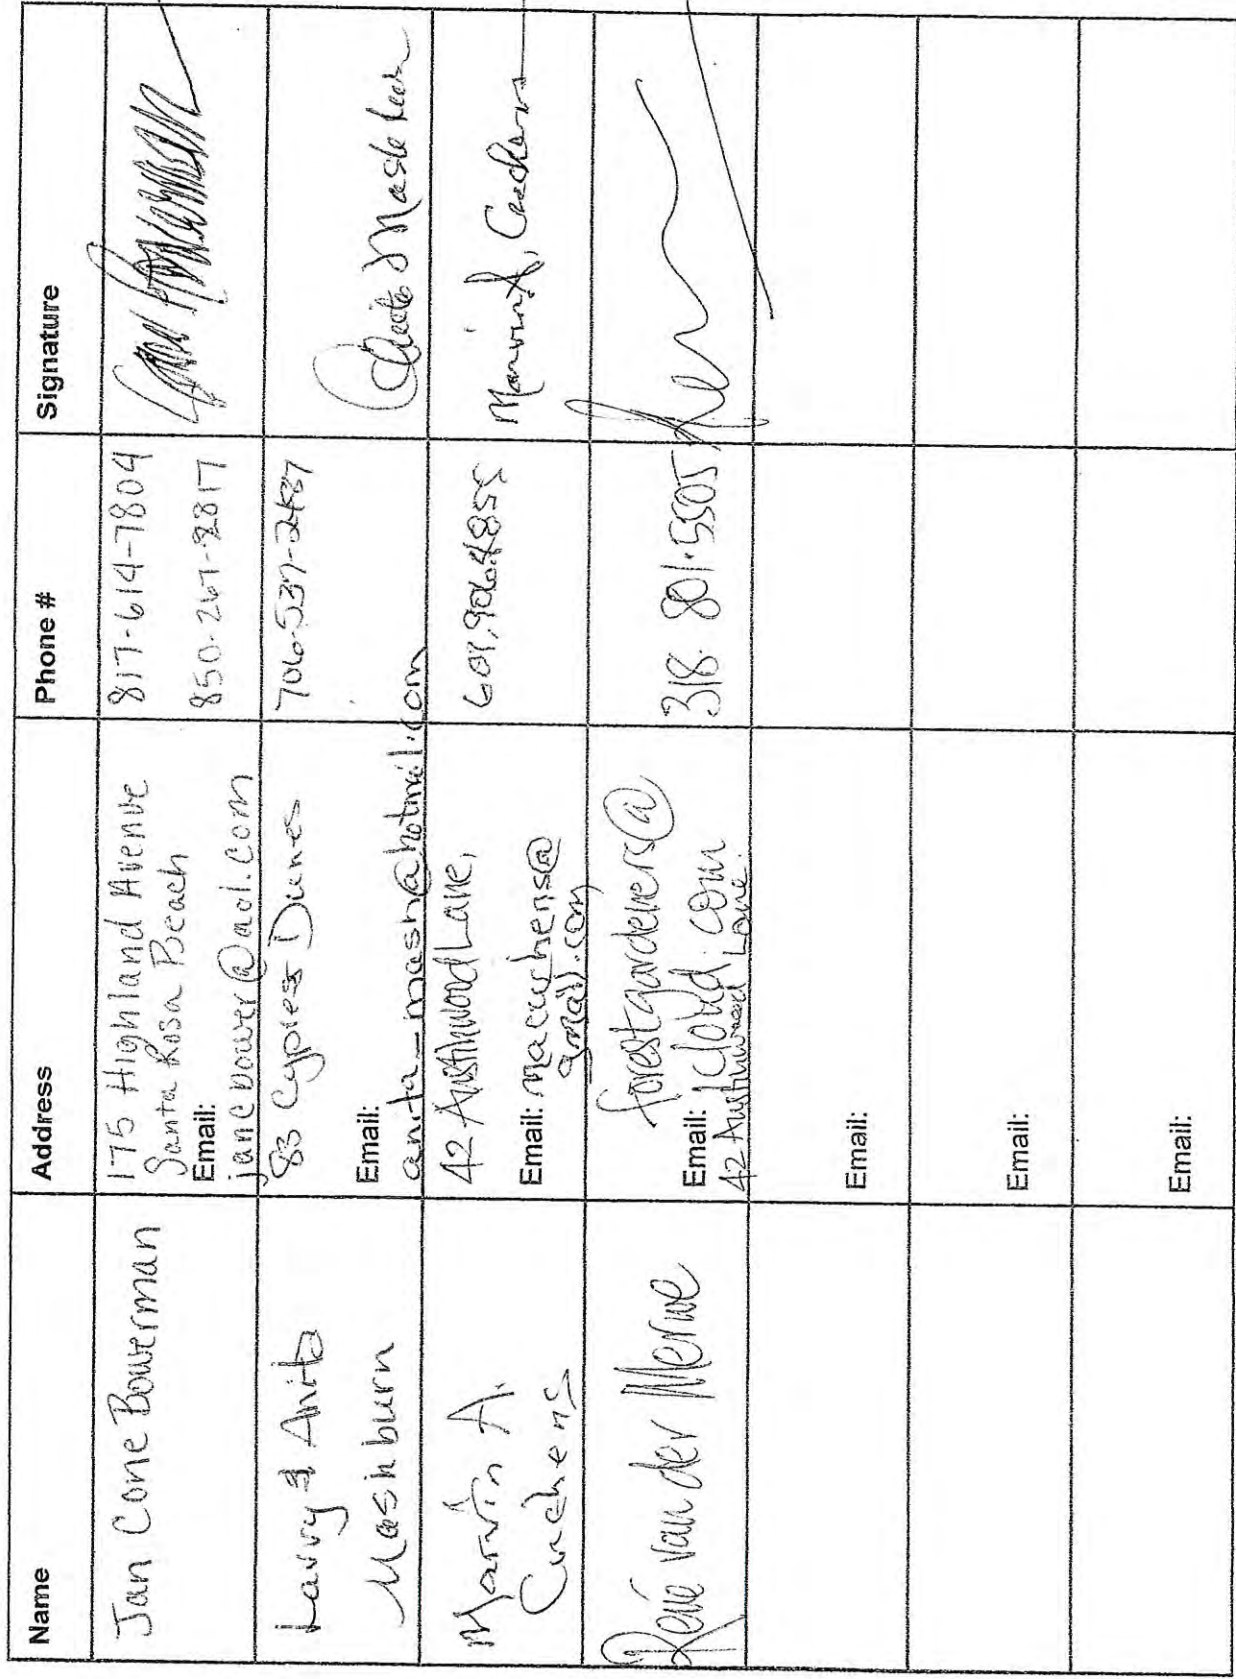 Name Address Phone # Signature
Jan Cone Bowerman
175 Highland Avenue
Santa Rosa Beach
Email:
janebower@aol.com
817-614-7804
850-267-2817
Larry & Anita
Mashburn
83 Cypress Dunes
Email:
anita_mash@hotmail.com
706-537-2487
Anita Mashburn
Marvin A.
Cuchens
42 Austinwood Lane,
Email: macuchens@
gmail.com
Marvin A. Cuchens
René van der Merwe
forestgardeners@
Email: icloud.com
42 Austinwood Lane.
318 801.5505
Email:
Email:
Email: